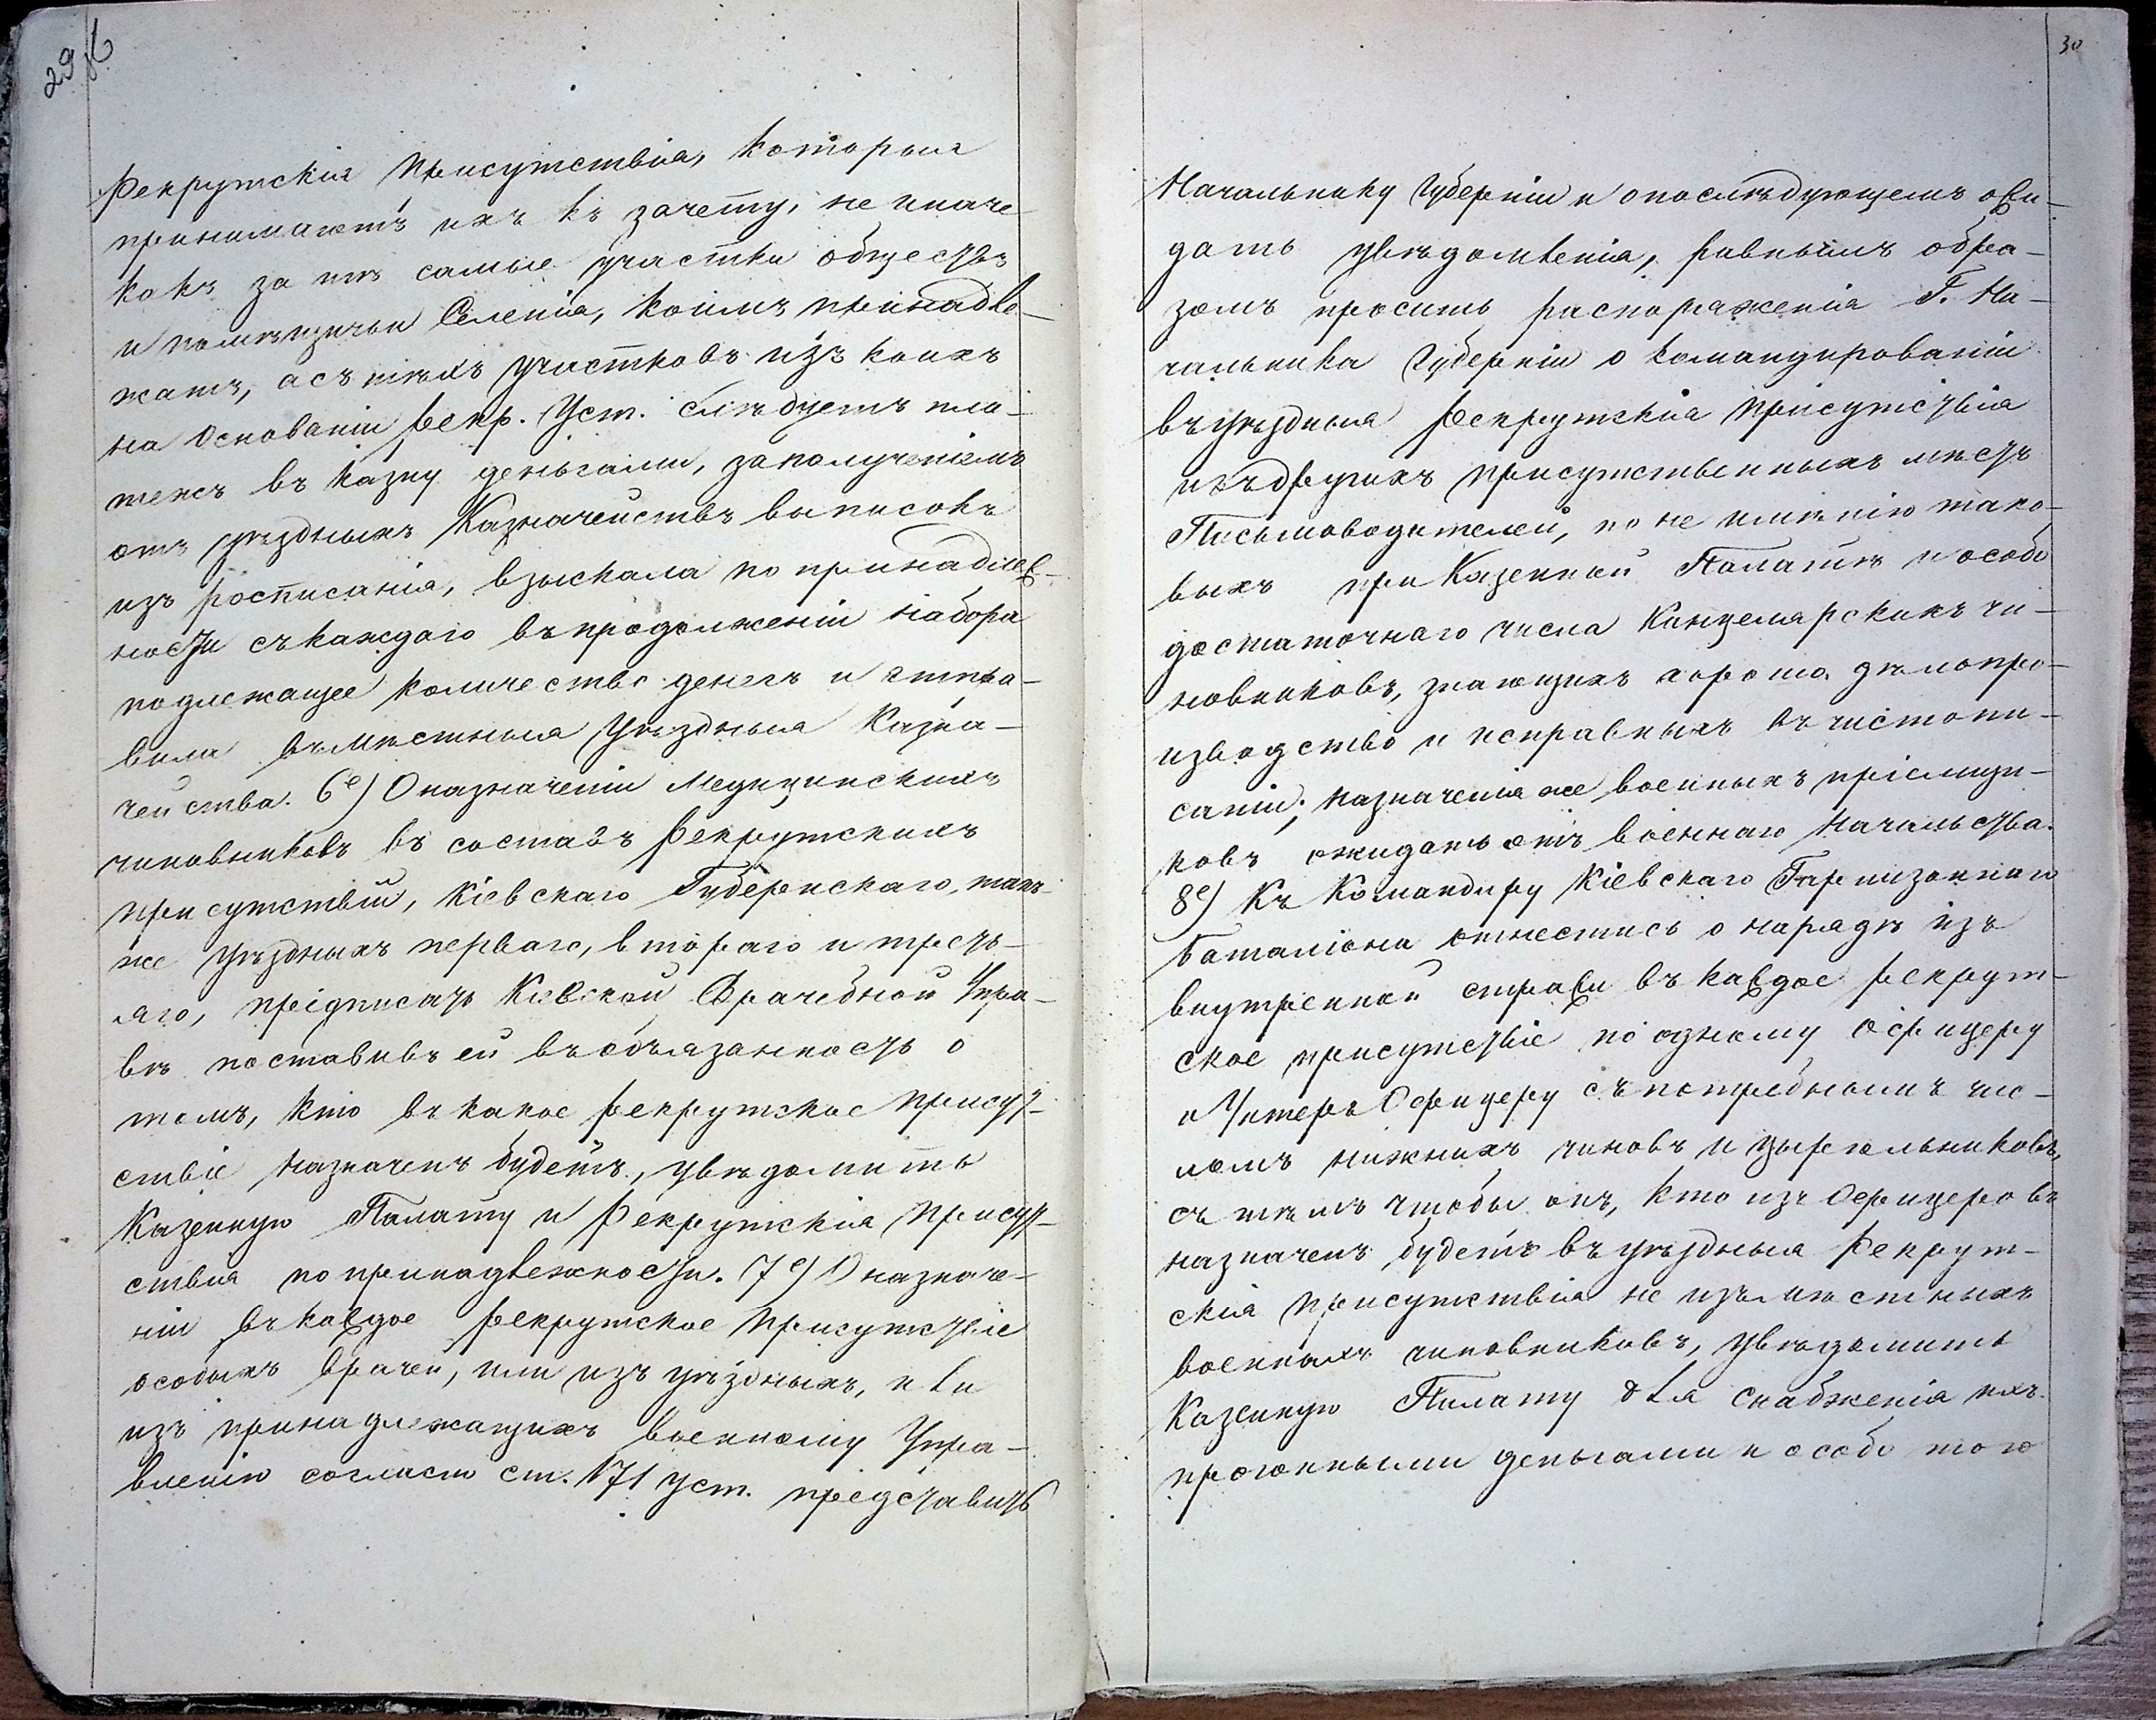 29
Рекрутскія Присутствія, которыя
принимаютъ ихъ къ зачету, не иначе
какъ за тѣ самые участки обществъ
и помѣщичьи Селенія, коимъ принадле-
жатъ, а съ тѣхъ участковъ изъ коихъ
на Основаніи Рекр. Уст. слѣдуетъ пла-
тежъ въ казну деньгами, за полученіемъ
отъ уѣздныхъ Казначействъ выписокъ
изъ росписанія, взыскала по принадлеж-
ности съ каждаго въ продолженіи набора
подлежащее количество денегъ и отпра-
вила въ мѣстныя Уѣздныя Казна-
чейства. 6е) О назначеніи Медицинскихъ
чиновниковъ въ составъ Рекрутскихъ
присутствій, Кіевскаго Губернскаго, так-
же уѣздныхъ перваго, втораго и треть-
яго, предписать Кіевской Врачебной Упра-
вѣ поставивъ ей въ обязанность о
томъ, кто въ какое рекрутское Присут-
ствіе назначенъ будетъ, увѣдомить
Казенную Палату и Рекрутскія Присут-
ствія по принадлежности. 7е) О назначе-
ніи въ каждое рекрутское Присутствіе
особыхъ врачей, или изъ уѣздныхъ, или
изъ принадлежащихъ военному Упра-
вленію согласно ст. 171 уст. представить
30
Начальнику Губерніи и о послѣдующемъ ожи-
дать увѣдомленія, равнымъ обра-
зомъ просить распоряженія Г. На-
чальника Губерніи о командированіи
въ уѣздныя Рекрутскія Присутствія
изъ другихъ присутственныхъ мѣстъ
Письмоводителей, по не имѣнію тако-
выхъ при Казенной Палатѣ и особо
достаточнаго числа Канцелярскихъ чи-
новниковъ, знающихъ хорошо дѣлопро-
изводство и исправныхъ въ чистопи-
саніи; назначенія же военныхъ пріемщи-
ковъ ожидать отъ военнаго Начальства.
8е) Къ Командиру Кіевскаго Гарнизоннаго
баталіона отнестись о нарядѣ изъ
внутренной стражи въ каждое рекрут-
ское присутствіе по одному Офицеру
и Унтеръ Офицеру съ потребнымъ чис-
ломъ нижнихъ чиновъ и цырюльниковъ,
съ тѣмъ чтобы онъ, кто изъ Офицеровъ
назначенъ будетъ въ уѣздныя Рекрут-
скія Присутствія не изъ мѣстныхъ
военныхъ чиновниковъ, увѣдомить
Казенную Палату для снабженія ихъ
прогонными деньгами и особо того